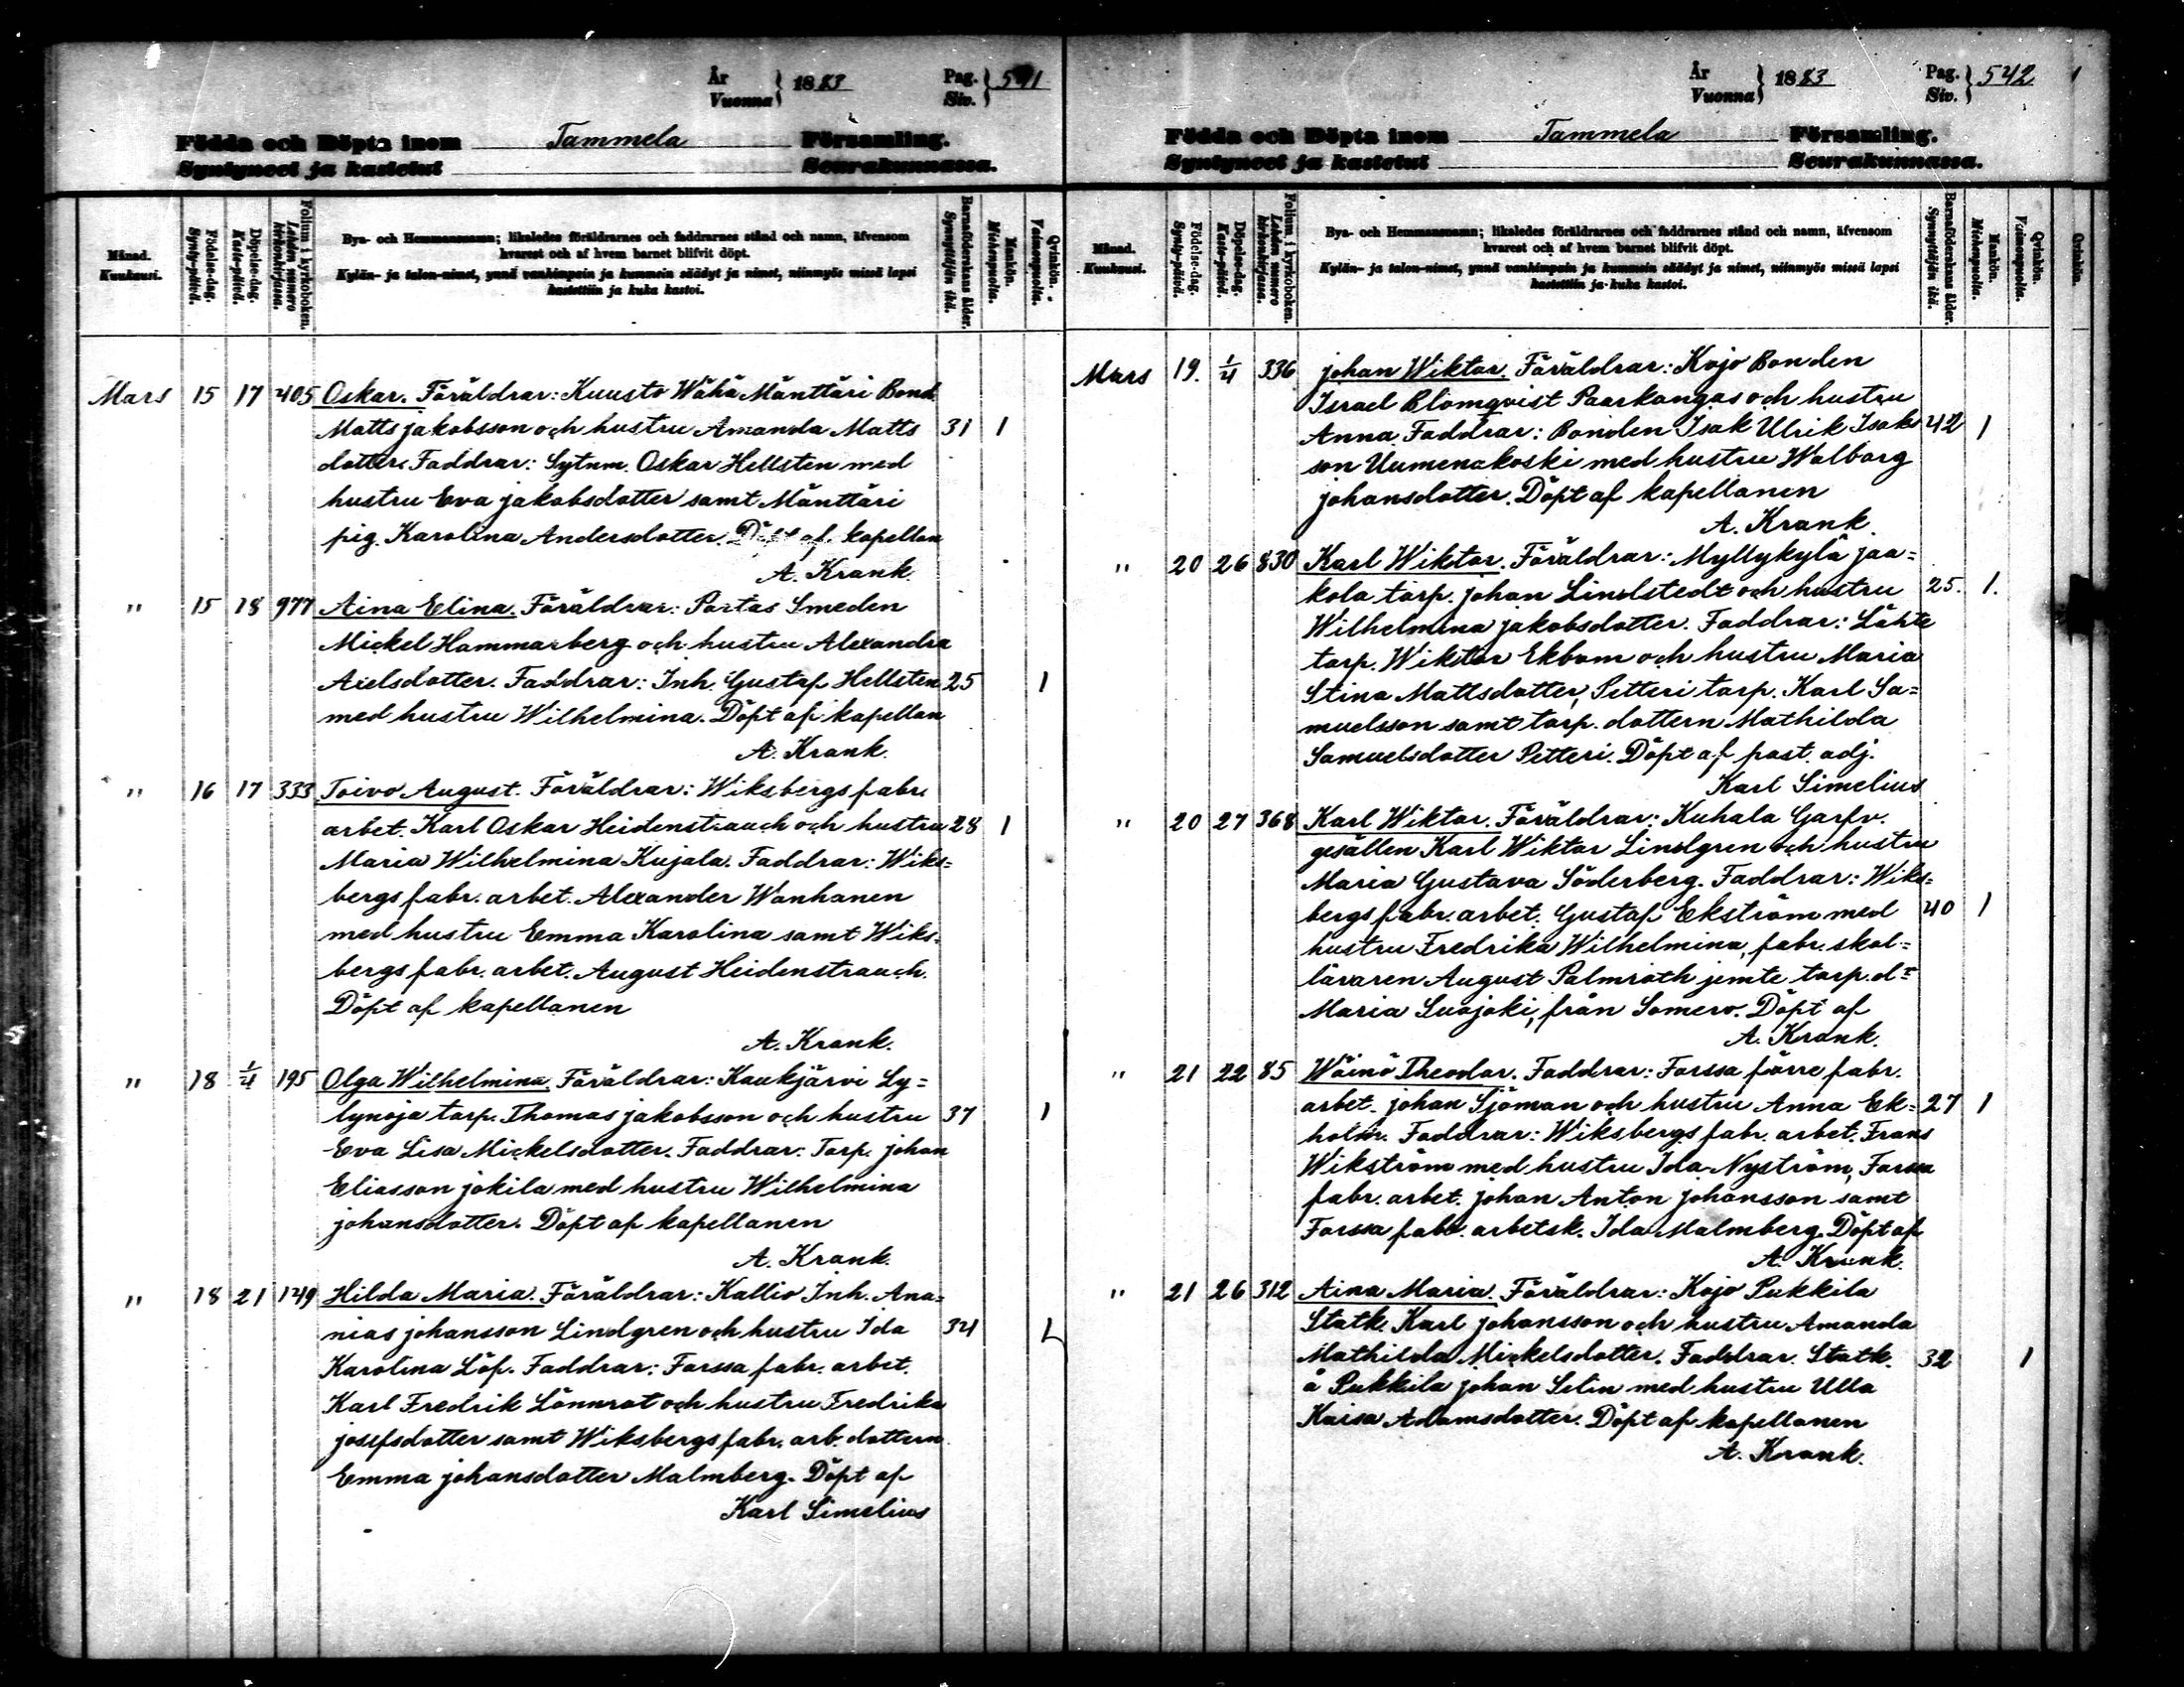 År
Vuonna } 1883
Pag.
Siv. } 541
Födda och Döpta inom Tammela Församling.
Syntyneet ja kastetut Seurakunnassa.
Månad.
Kuukausi.
Födelse-dag.
Synty-päivä.
Döpelse-dag.
Kaste-päivä.
Folium i kyrkoboken.
Lehden numero
kirkonkirjassa.
Bya- och Hemmansnamn; likaledes föräldrarnes och faddrarnes stånd och namn, äfvensom
hvarest och af hvem barnet blifvit döpt.
Kylän- ja talon-nimet, ynnä vanhimpain ja kummein säädyt ja nimet, niinmyös missä lapsi
kastettiin ja kuka kastoi.
Barnaföderskans ålder.
Synnyttäjän ikä.
Mankön.
Miehenpuolta.
Qvinkön.
Vaimonpuolta.
Mars 15 17 405 Oskar. Föräldrar: Kuusto Wähä Mänttäri Bond
Matts jakobsson och hustru Amanda Matts 31 1
dotter. Faddrar: Sytnm. Oskar Hellsten med
hustru Eva jakobsdotter samt Mänttäri
pig. Karolina Andersdotter. Döpt af kapellan
A. Krank.
" 15 18 977 Aina Elina. Föräldrar: Portas Smeden
Mickel Hammarberg och hustru Alexandra
Axelsdotter. Faddrar: Inh. Gustaf Hellsten 25 1
med hustru Wilhelmina. Döpt af kapellan
A. Krank.
" 16 17 333 Toivo August. Föräldrar: Wiksbergs fabr.
arbet. Karl Oskar Heidenstrauch och hustru 28 1
Maria Wilhelmina Kujala. Faddrar: Wiks=
bergs fabr. arbet. Alexander Wanhanen
med hustru Emma Karolina samt Wiks=
bergs fabr. arbet. August Heidenstrauch.
Döpt af kapellanen
A. Krank.
" 18 1/4 195 Olga Wilhelmina. Föräldrar: Kaukjärvi Ly=
lynoja torp. Thomas jakobsson och hustru 37 1
Eva Lisa Mickelsdotter. Faddrar: Torp. johan
Eliasson jokila med hustru Wilhelmina
johansdotter. Döpt af kapellanen
A. Krank.
" 18 21 149 Hilda Maria. Föräldrar: Kallio Inh. Ana=
nias johansson Lindgren och hustru Ida 34 1
Karolina Löf. Faddrar: Forssa fabr. arbet.
Karl Fredrik Lönnrot och hustru Fredrika
josefsdotter samt Wiksbergs fabr. arb. dottern
Emma johansdotter Malmberg. Döpt af
Karl Simelius
År
Vuonna } 1883
Pag.
Siv. } 542
Födda och Döpta inom Tammela Församling.
Syntyneet ja kastetut Seurakunnassa.
Månad.
Kuukausi.
Födelse-dag.
Synty-päivä.
Döpelse-dag.
Kaste-päivä.
Folium i kyrkoboken.
Lehden numero
kirkonkirjassa.
Bya- och Hemmansnamn; likaledes föräldrarnes och faddrarnes stånd och namn, äfvensom
hvarest och af hvem barnet blifvit döpt.
Kylän- ja talon-nimet, ynnä vanhimpain ja kummein säädyt ja nimet, niinmyös missä lapsi
kastettiin ja kuka kastoi.
Barnaföderskans ålder.
Synnyttäjän ikä.
Mankön.
Miehenpuolta.
Qvinkön.
Vaimonpuolta.
Qvinkön.
Mars 19. 1/4 336 johan Wiktor. Föräldrar: Kojo Bonden
Israel Blomqvist Paarkangas och hustru
Anna. Faddrar: Bonden Isak Ulrik Isaks 42 1
son Uumenakoski med hustru Walborg
johansdotter. Döpt af kapellanen
A. Krank.
" 20 26 830 Karl Wiktor. Föräldrar: Myllykylä jaa=
kola torp. johan Lindstedt och hustru 25. 1.
Wilhelmina jakobsdotter. Faddrar: Lähte
torp. Wiktor Ekbom och hustru Maria
Stina Mattsdotter, Petteri torp. Karl Sa=
muelsson samt torp. dottern Mathilda
Samuelsdotter Petteri. Döpt af past. adj.
Karl Simelius
" 20 27 368 Karl Wiktor. Föräldrar: Kuhala Garfv.
gesällen Karl Wiktor Lindgren och hustru
Maria Gustava Söderberg. Faddrar: Wiks=
bergs fabr. arbet. Gustaf Ekström med 40 1
hustru Fredrika Wilhelmina, fabr. skol=
läraren August Palmroth jemte torp. d=
Maria Suojoki, från Somero. Döpt af
A. Krank.
" 21 22 85 Wäinö Theodor. Faddrar: Forssa förre fabr.
arbet. johan Sjöman och hustru Anna Ek= 27 1
holm. Faddrar: Wiksbergs fabr. arbet. Frans
Wikström med hustru Ida Nyström, Forssa
fabr. arbet. johan Anton johansson samt
Forssa fabr. arbetsk. Ida Malmberg. Döpt af
A. Krank.
" 21 26 312 Aina Maria. Föräldrar: Kojo Pukkila
Statk. Karl johansson och hustru Amanda
Mathilda Mickelsdotter. Faddrar. Statk. 32 1
å Pukkila johan Selin med hustru Ulla
Kaisa Adamsdotter. Döpt af kapellanen
A. Krank.